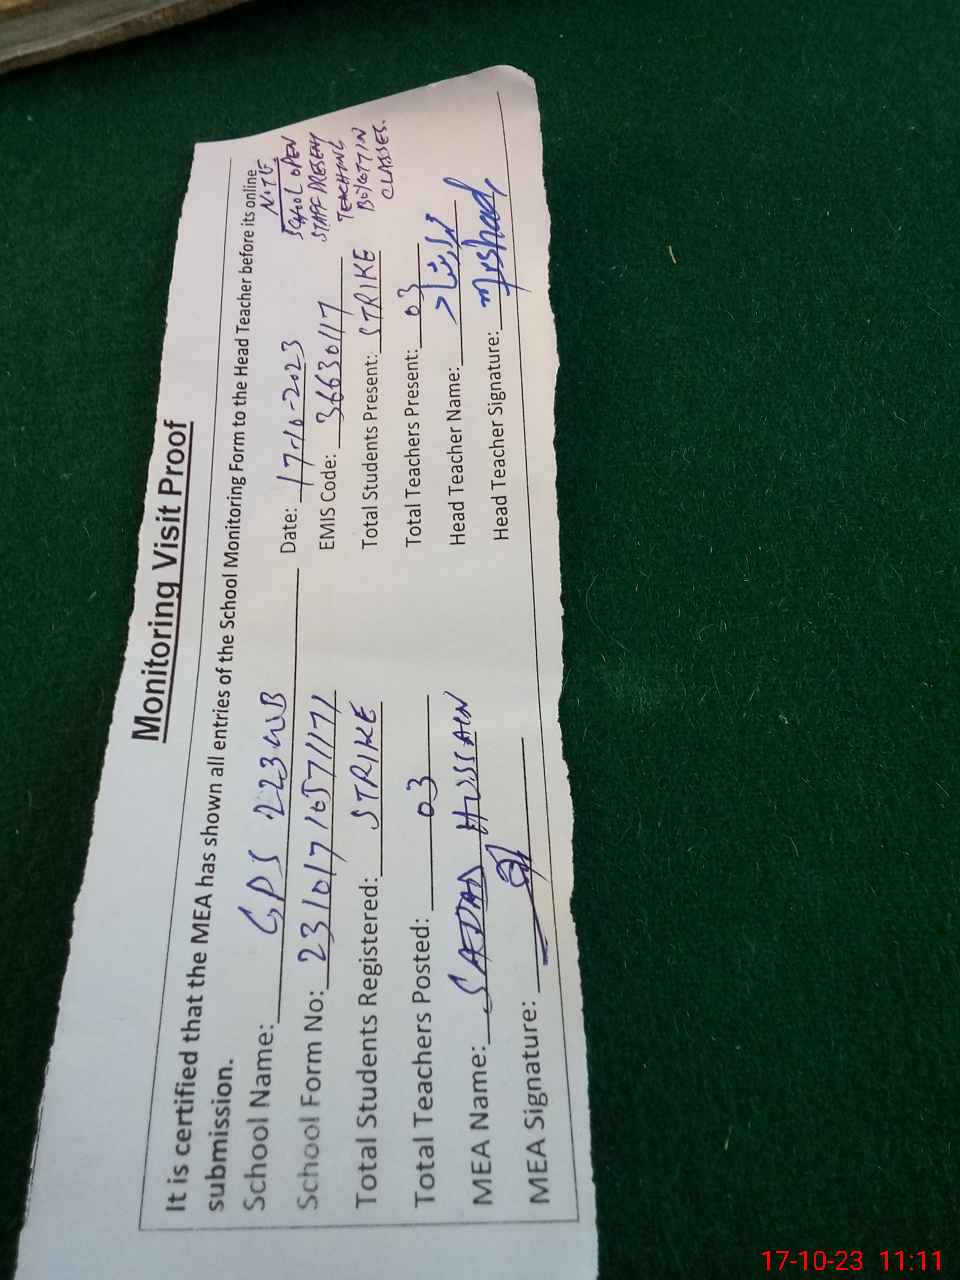 Monitoring Visit Proof
It is certified that the MEA has shown all entries of the School Monitoring Form to the Head Teacher before its online
submission.
NOTE
SCHOOL OPEN
STAFF PRESENT
TEACHING
BOYCOTT IN
CLASSES.
School Name: GPS 223 WB Date: 17-10-2023
School Form No: EMIS Code: 36630117
Total Students Registered: STRIKE Total Students Present: STRIKE
Total Teachers Posted: 03 Total Teachers Present: 03
MEA Name: SAJJAD HUSSAIN Head Teacher Name:
MEA Signature: Head Teacher Signature: Mrshad
17-10-23 11:11